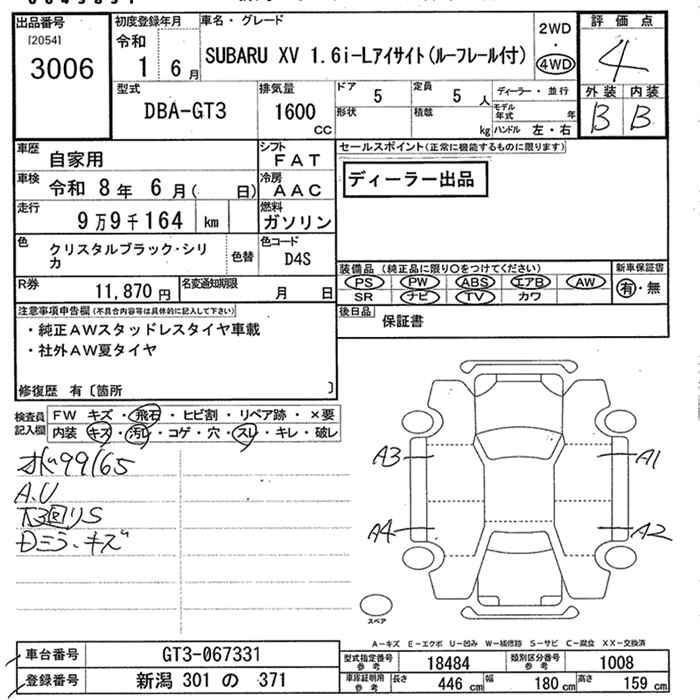 出品番号
[2054]
3006
初度登録年月
令和
1 6月
車名・グレード
SUBARU XV 1.6i-Lアイサイト(ルーフレール付)
2WD
・
4WD
評価点
4
外装 内装
B B
型式
DBA-GT3
排気量
1600
CC
ドア
5
定員
5 人
ディーラー・並行
形状
積載
kg
モデル年式 年
ハンドル 左・右
車歴
自家用
シフト
FAT
セールスポイント(正常に機能するものに限ります)
ディーラー出品
車検
令和 8年 6月( 日)
冷房
AAC
走行
9万9千164 km
燃料
ガソリン
色
クリスタルブラック・シリカ
色替
色コード
D4S
R券
11,870円
名変通知期限
月 日
装備品(純正品に限り○をつけてください)
PS PW ABS エアB AW
SR ナビ TV カワ
新車保証書
有・無
後日品
保証書
注意事項申告欄(不具合内容等は具体的に記入して下さい)
・純正AWスタッドレスタイヤ車載
・社外AW夏タイヤ
修復歴 有〔箇所 〕
検査員記入欄
FW キズ・飛石・ヒビ割・リペア跡・×要
内装 キズ・汚レ・コゲ・穴・スレ・キレ・破レ
99165
A.U
下回りS
Dミラ・キズ
A3
A1
A4
A2
スペア
A-キズ E-エクボ U-凹み W-補修跡 S-サビ C-腐食 XX-交換済
車台番号
GT3-067331
登録番号
新潟 301 の 371
型式指定番号
参考
18484
類別区分番号
参考
1008
車庫証明用
参考
長さ
446 cm
幅
180 cm
高さ
159 cm